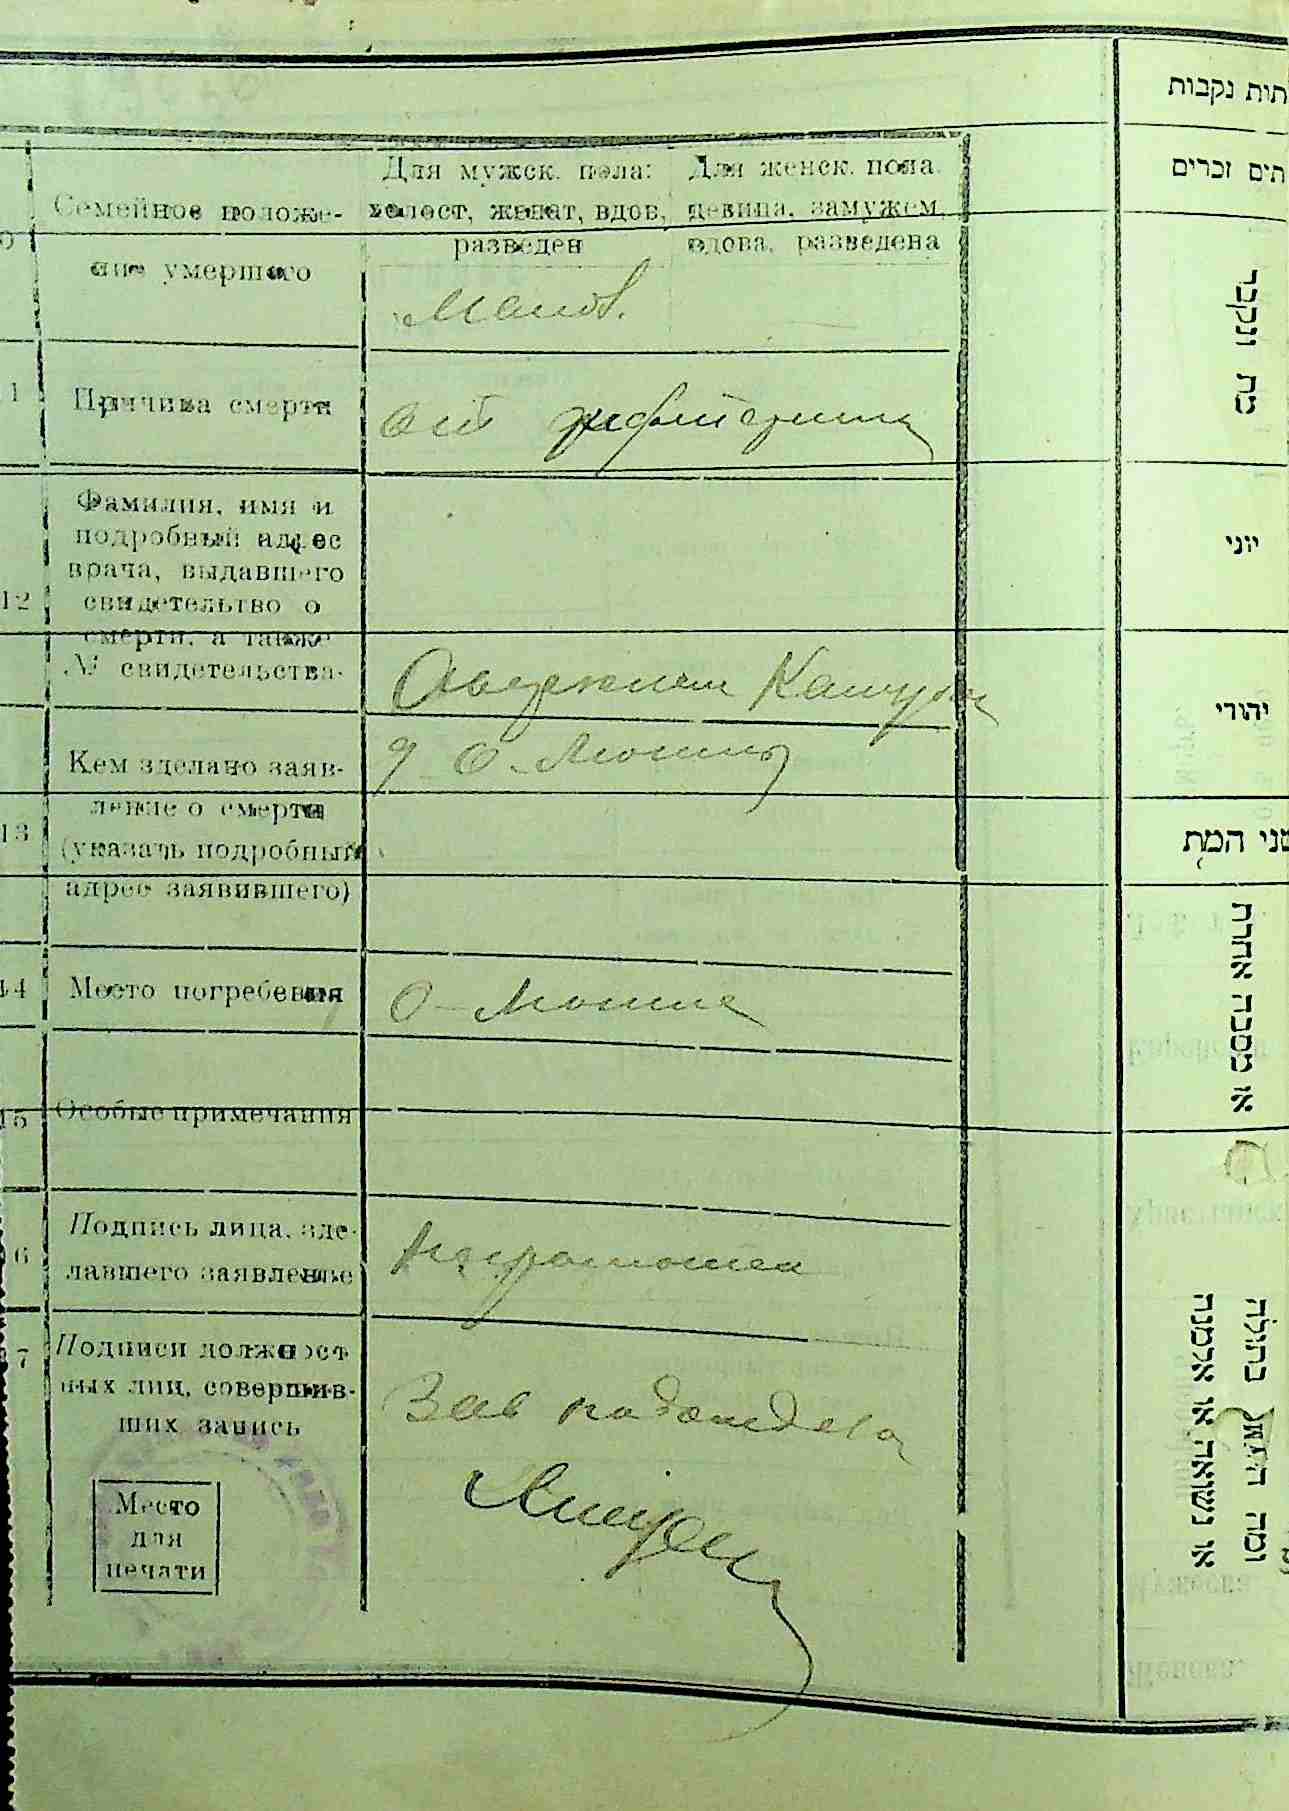 Для мужск. пола:
холост, женат, вдов,
разведен
Для женск. пола
девица, замужем,
вдова, разведена
Семейное положе-
ние умершего
Малол.
1
Причина смерти
От дифтерита
12
Фамилия, имя и
подробный адрес
врача, выдавшего
свидетельство о
смерти, а также
№ свидетельства.
13
Кем зделано заяв-
ление о смерти
(указать подробный
адрес заявившего)
14
Место погребения
15
Особые примечания
6
Подпись лица, зде-
лавшего заявление
Неграмотен
7
Подписи должност-
ных лиц, совершив-
ших запись
Зав подотдела
Место
для
печати
תות נקבות
תים זכרים
מת ונקבר
יוני
יהודי
שני המת
או מסבה אחרת
ומה היא בתולה
או נשואה או אלמנה